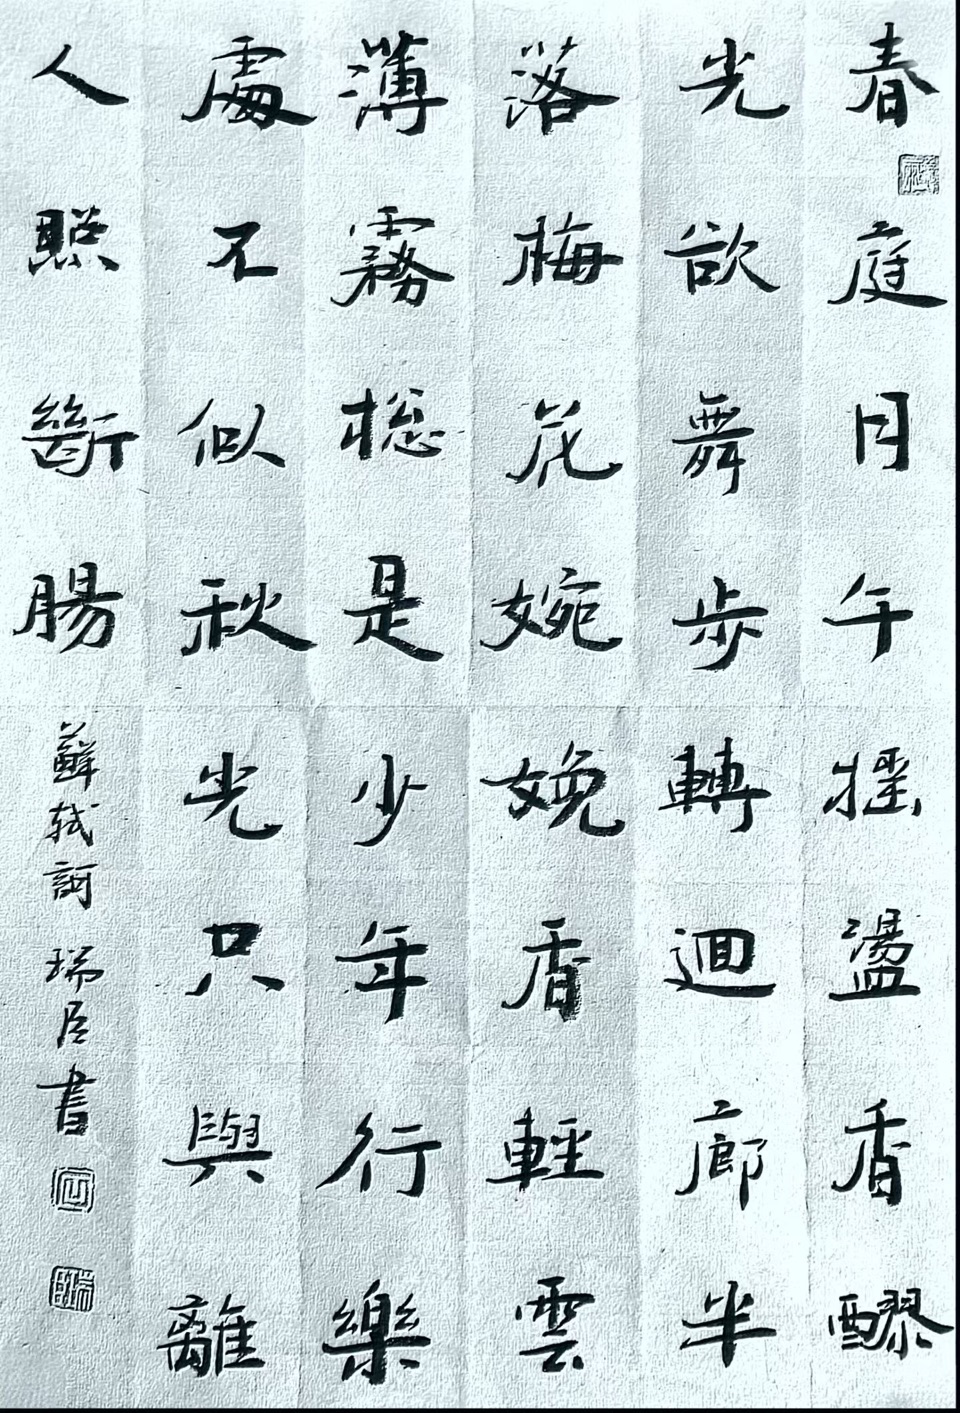 春庭月午揺盪香醪
光欲舞步轉迴廊半
落梅花婉娩香輕雲
薄霧総是少年行樂
處不似秋光只與離
人照斷腸
蘇軾詞 瑞臣書